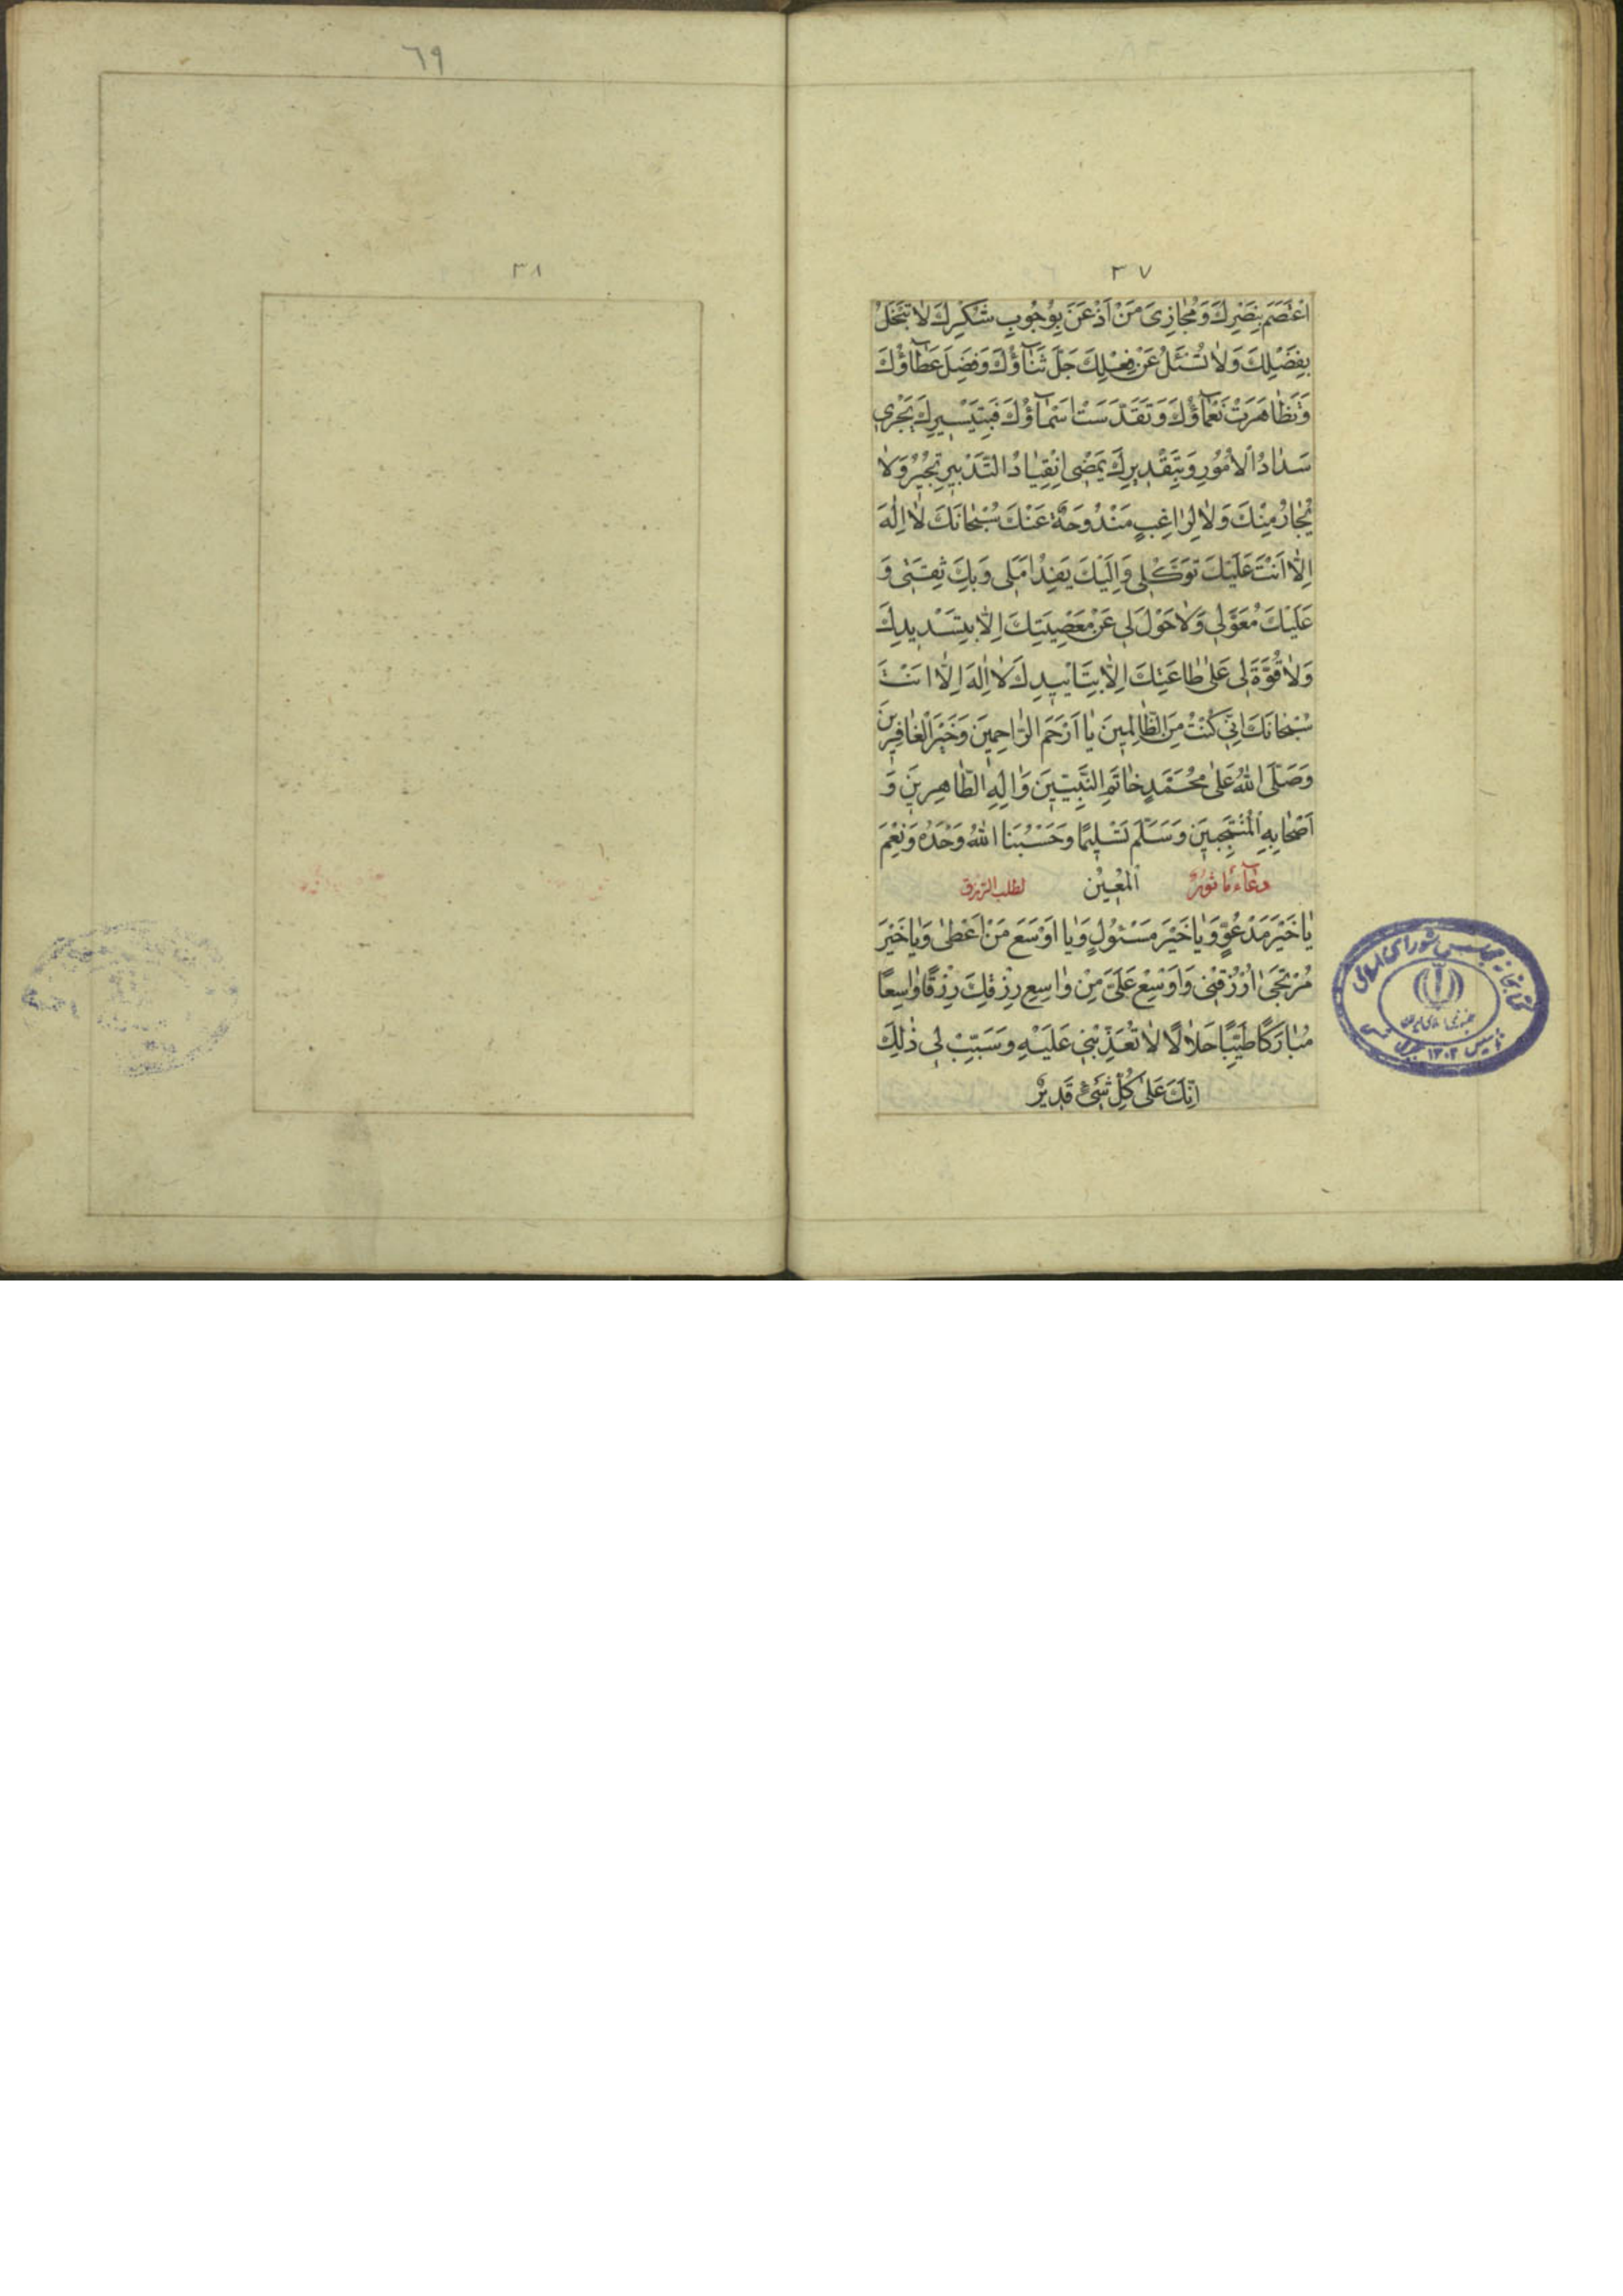 ٣٧
اعْتَصَمَ بِنَصْرِكَ وَمُجازِىَ مَنْ اَذْعَنَ بِوُجُوبِ شُكْرِكَ لاٰ تَبْخَلُ
بِفَضْلِكَ وَلاٰ تُسْئَلُ عَنْ فِعْلِكَ جَلَّ ثَنآؤُكَ وَفَضَلَ عَطآؤُكَ
وَتَظاهَرَتْ نَعْمآؤُكَ وَتَقَدَّسَتْ اَسْمآؤُكَ فَبِتَيْسيرِكَ يَجْرى
سَدادُ الْاُمُورِ وَبِتَقْديرِكَ يَمْضِى انْقِيادُ التَّدْبيرِ تُجيرُ وَلاٰ
يُجارُ مِنْكَ وَلاٰ لِراغِبٍ مَنْدُوحَةٌ عَنْكَ سُبْحانَكَ لاٰ اِلٰهَ
اِلاّٰ اَنْتَ عَلَيْكَ تَوَكُّلى وَاِلَيْكَ يَفِدُ اَمَلى وَبِكَ ثِقَتى وَ
عَلَيْكَ مُعَوَّلى وَلاٰ حَوْلَ لى عَنْ مَعْصِيَتِكَ اِلاّٰ بِتَسْديدِكَ
وَلاٰ قُوَّةَ لى عَلىٰ طاعَتِكَ اِلاّٰ بِتَاْييدِكَ لاٰ اِلٰهَ اِلاّٰ اَنْتَ
سُبْحانَكَ اِنّى كُنْتُ مِنَ الظّالِمينَ يا اَرْحَمَ الرّاحِمينَ وَخَيْرَ الْغافِرينَ
وَصَلَّى اللهُ عَلىٰ مُحَمَّدٍ خاتَمِ النَّبِيّينَ وَاٰلِهِ الطّاهِرينَ وَ
اَصْحابِهِ الْمُنْتَجَبينَ وَسَلَّمَ تَسْليمًا وَحَسْبُنَا اللهُ وَحْدَهُ وَنِعْمَ
دعآء مأثور الْمُعينُ لطلب الرزق
يا خَيْرَ مَدْعُوٍّ وَيا خَيْرَ مَسْئُولٍ وَيا اَوْسَعَ مَنْ اَعْطىٰ وَيا خَيْرَ
مُرْتَجىٰ اُرْزُقْنى وَاَوْسِعْ عَلَىَّ مِنْ واسِعِ رِزْقِكَ رِزْقًا واسِعًا
مُبارَكًا طَيِّبًا حَلالًا لاٰ تُعَذِّبْنى عَلَيْهِ وَسَبِّبْ لى ذٰلِكَ
اِنَّكَ عَلىٰ كُلِّ شَىْءٍ قَديرٌ
كتابخانه مجلس شورای اسلامی
جمهوری اسلامی ایران
تأسیس ١٣٠٢
٦٩
٣٨